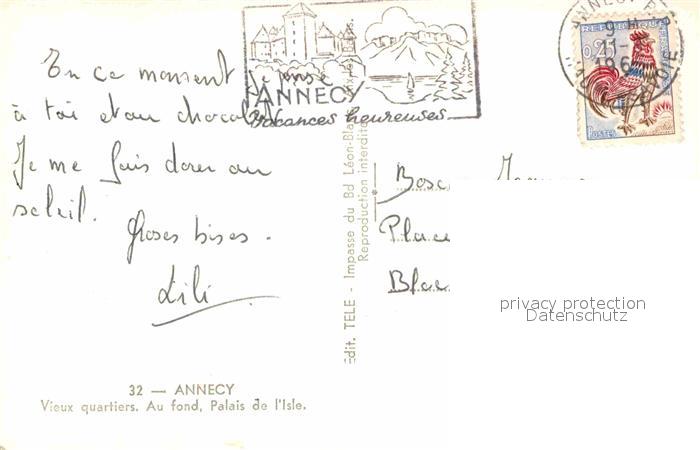 En ce moment je pense
à toi et au chocolat.
Je me fais dorer au
soleil.
Grosses bises.
Lili
32 — ANNECY
Vieux quartiers. Au fond, Palais de l'Isle.
ANNECY
vacances heureuses
Edit. TELE - Impasse du Bd Léon-Blanc, Aix-les-Bains.
Reproduction interdite
ANNECY
9 H
RF
REPUBLIQUE
0,25
POSTES
Bosc
Place
Blac
privacy protection
Datenschutz